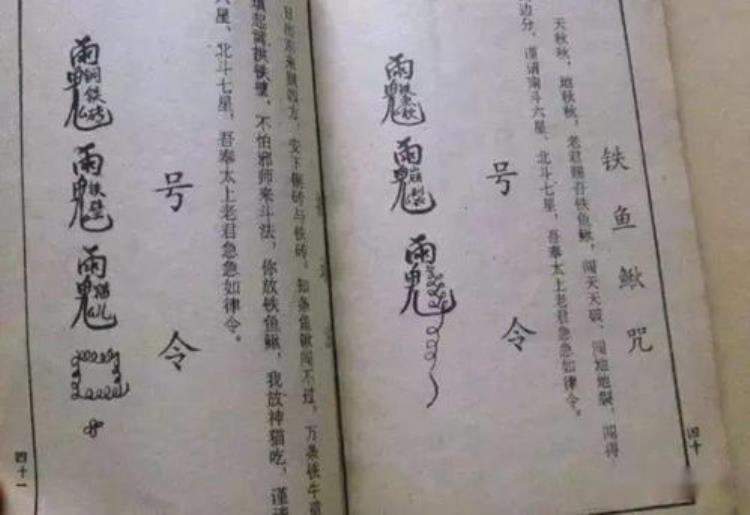 铁鱼鳅咒
天秋秋，地秋秋，老君赐吾铁鱼鳅，闯天天破、闯地地裂，闯得
边分，谨请南斗六星、北斗七星，吾奉太上老君急急如律令。
号令
四十
安下铜砖与铁砖。知条鱼鳅闯不过，万条铁牛
铁壁，不怕邪师来斗法，你放铁鱼鳅，我放神猫吃，谨请
六星、北斗七星，吾奉太上老君急急如律令。
号令
雨鬼铜铁砖
雨鬼铁壁
雨鬼猫儿
四十一